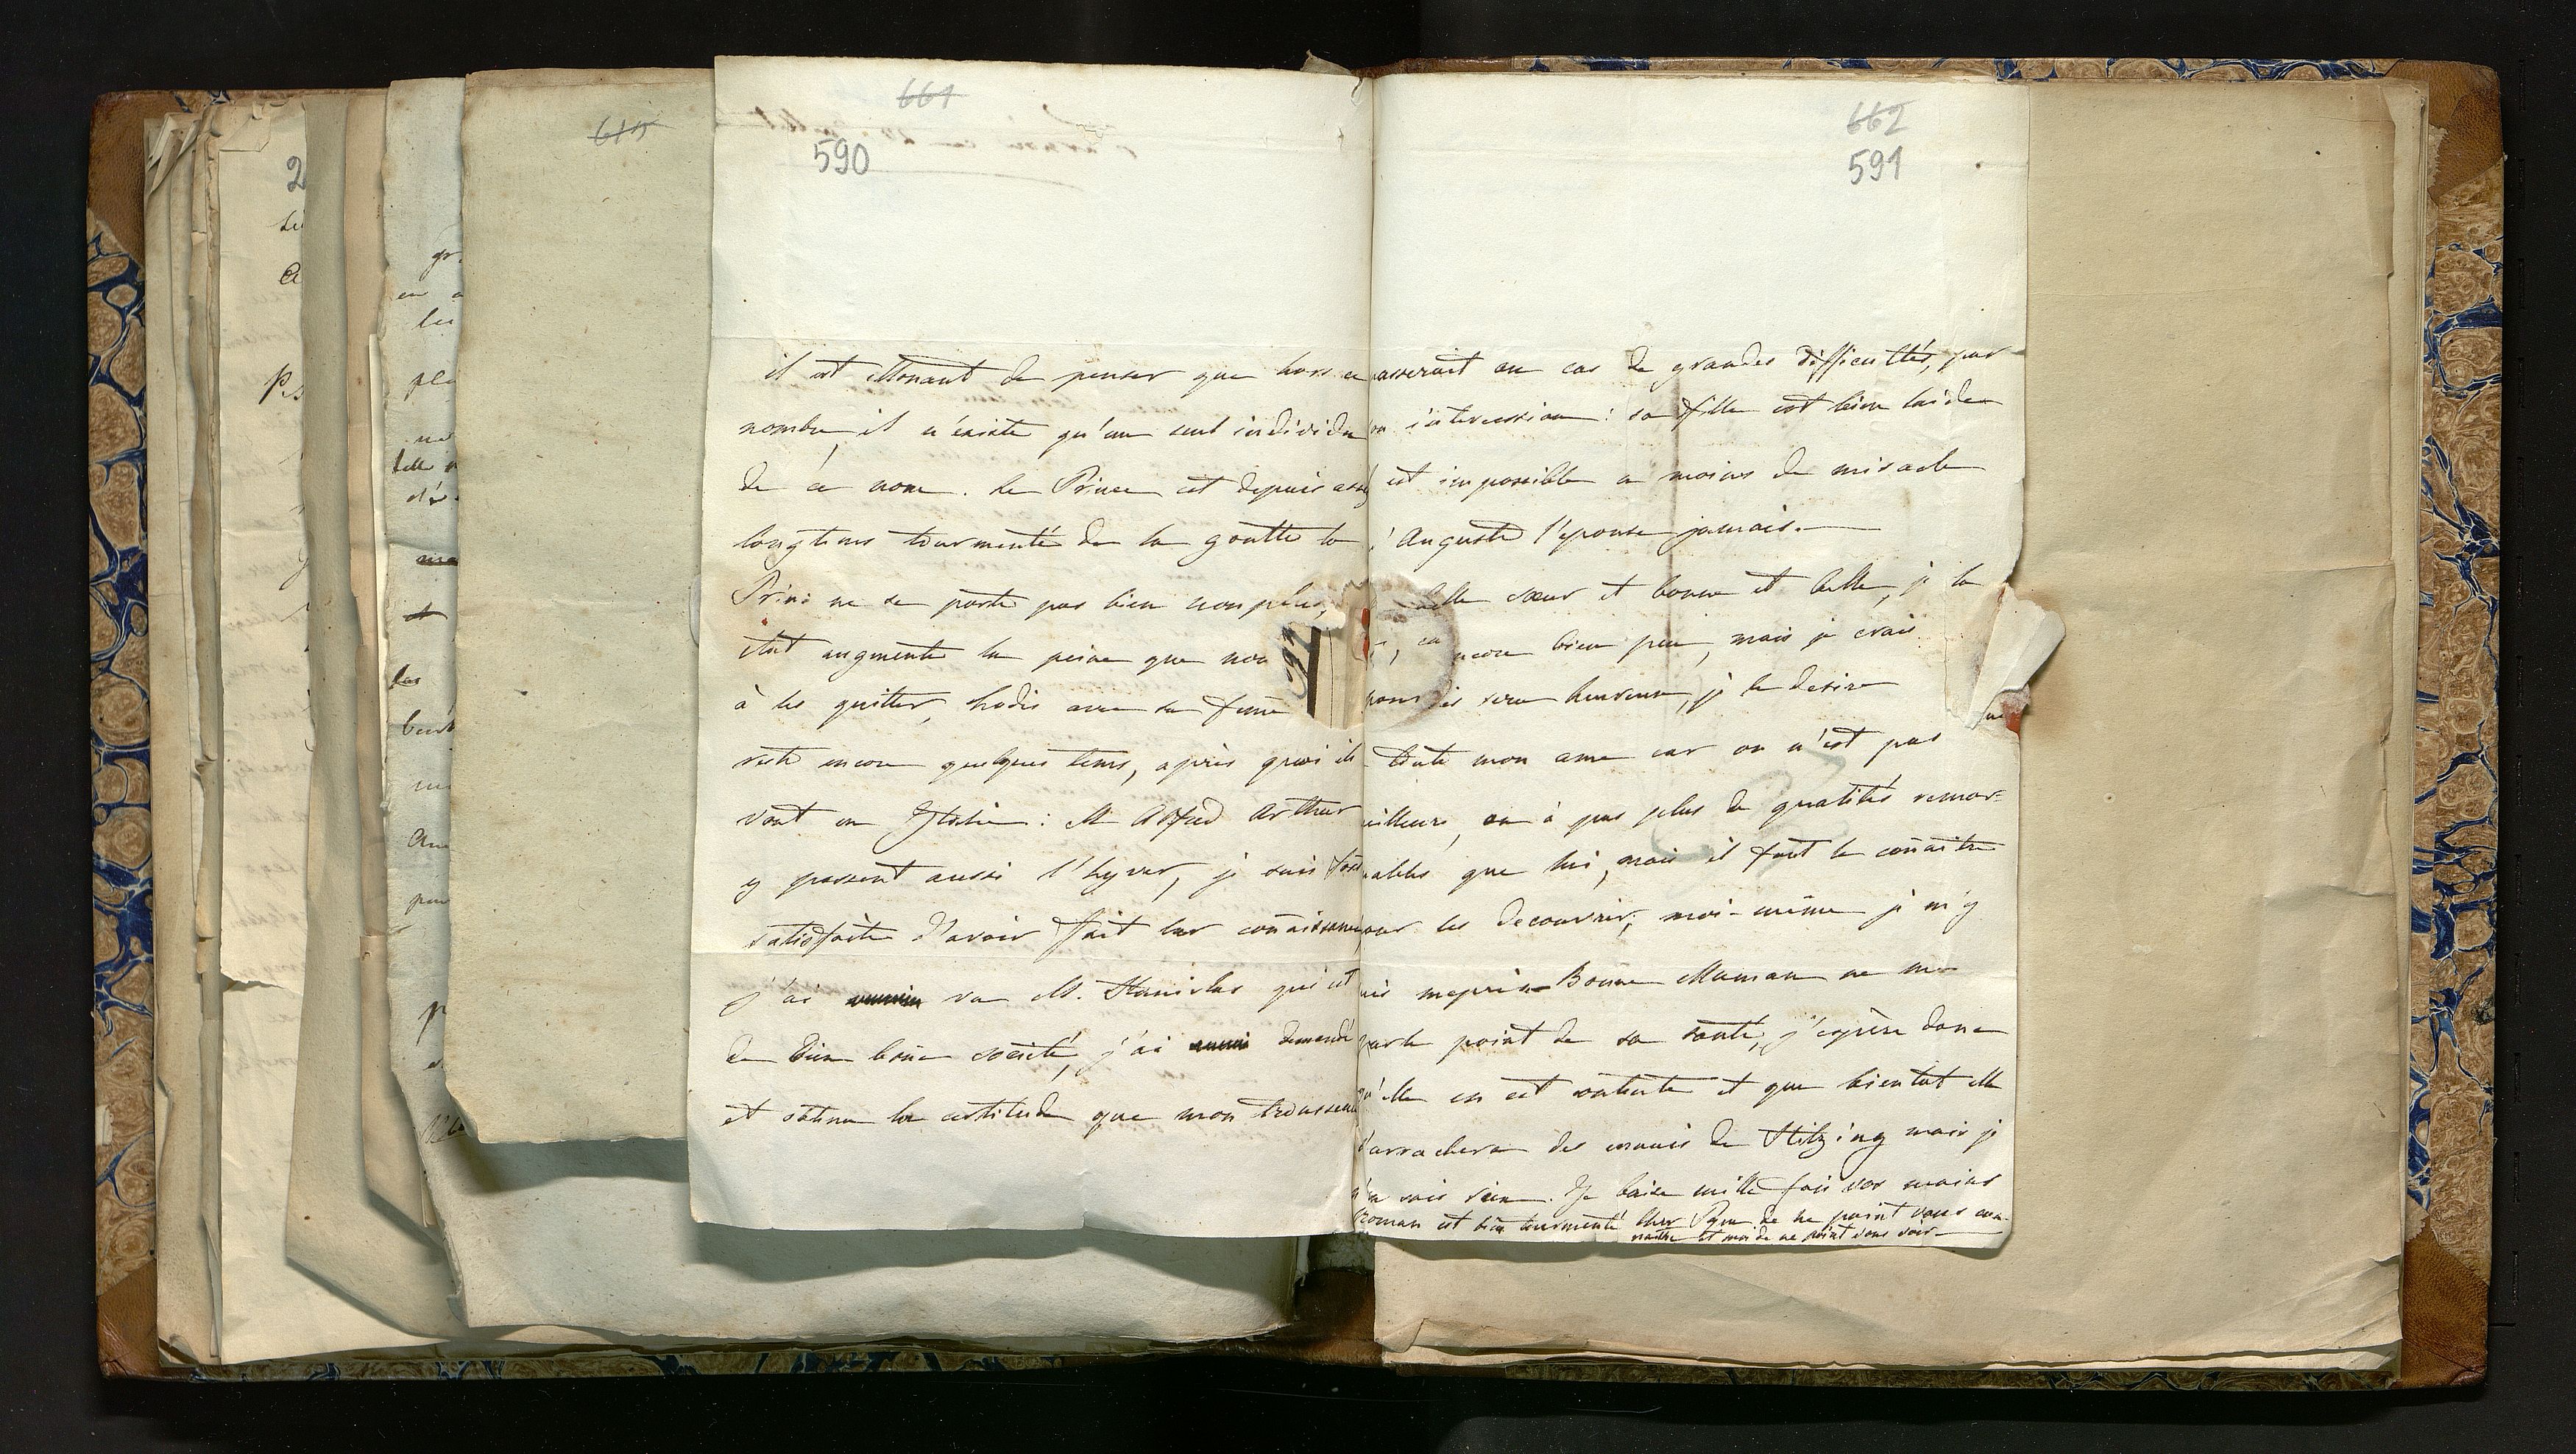 661
590
il est etonant de penser que hors ce
nombre, il n'existe qu'un seul individu
de ce nom. Le Prince est depuis assez
longtems tourmenté de la goutte la
Princ ne se porte pas bien non plus,
etat augmente la peine que nou
à les quitter, Ladis avec sa feme
reste encore quelques tems, après quoi ils
vont en Italie: M Alfred Arthur
y passent aussi l'hyver, je suis fort
satisfaite d'avoir fait leur conaissance
j'ai vu M. Stanislas qui est
de bien bone societé, j'ai demandé
et obtenu la certitude que mon trousseau
662
591
passerait au cas de grandes difficultés, par
son intercession: sa fille est bien laide
est impossible a moins de miracle
Auguste l'epouse jamais.
belle soeur et bonne et belle, je la
encore bien peu, mais je crois
sera heureuse, je le desire
toute mon ame car on n'est pas
meilleure, on à pas plus de qualités remar-
quables que lui, mais il faut le conaitre
pour les decouvrir, moi-même je m'y
suis mepris. Bonne Maman ne me
parle point de sa santé, j'espère donc
qu'elle en est contente et que bientot elle
s'arrachera des ennuis de Hitzing mais je
n'en sais rien. Je baise mille fois vos mains
Roman est bien tourmenté cher Papa de ne point vous con-
naitre et moi de ne point vous voir
615